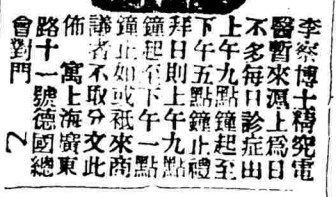 李察博士精究電
醫暫來滬上爲日
不多每日診症出
上午九點鐘起至
下午五點鐘止禮
拜日則上午九點
鐘起至下午一點
鐘止如或祇來商
議者不取分文此
佈　寓上海廣東
路十一號德國總
會對門